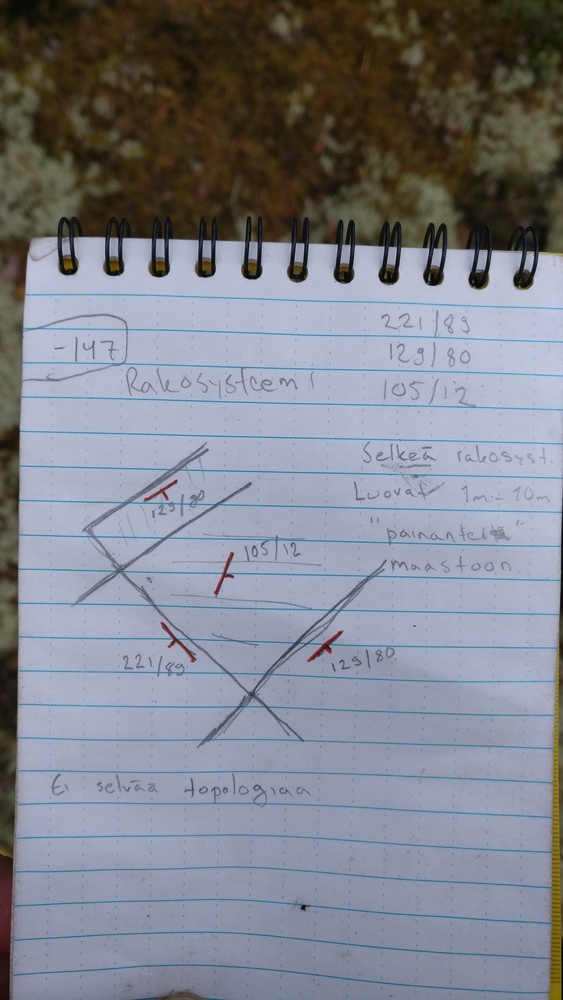 221/89
-147
129/80
Rakosysteemi
105/12
Selkeä rakosyst.
Luovat 1m-10m
"painanteita"
maastoon
129/80
105/12
221/89
129/80
Ei selvää topologiaa